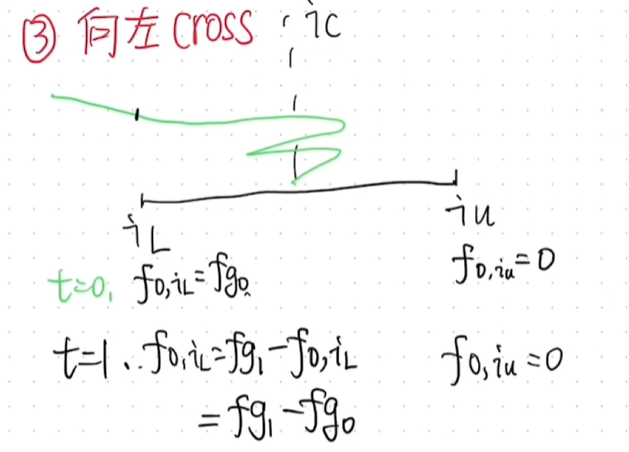 ③ 向左 cross ic
iL
iu
t=0, f0,iL=fg0
f0,iu=0
t=1.. f0,iL=fg1-f0,iL
f0,iu=0
=fg1-fg0